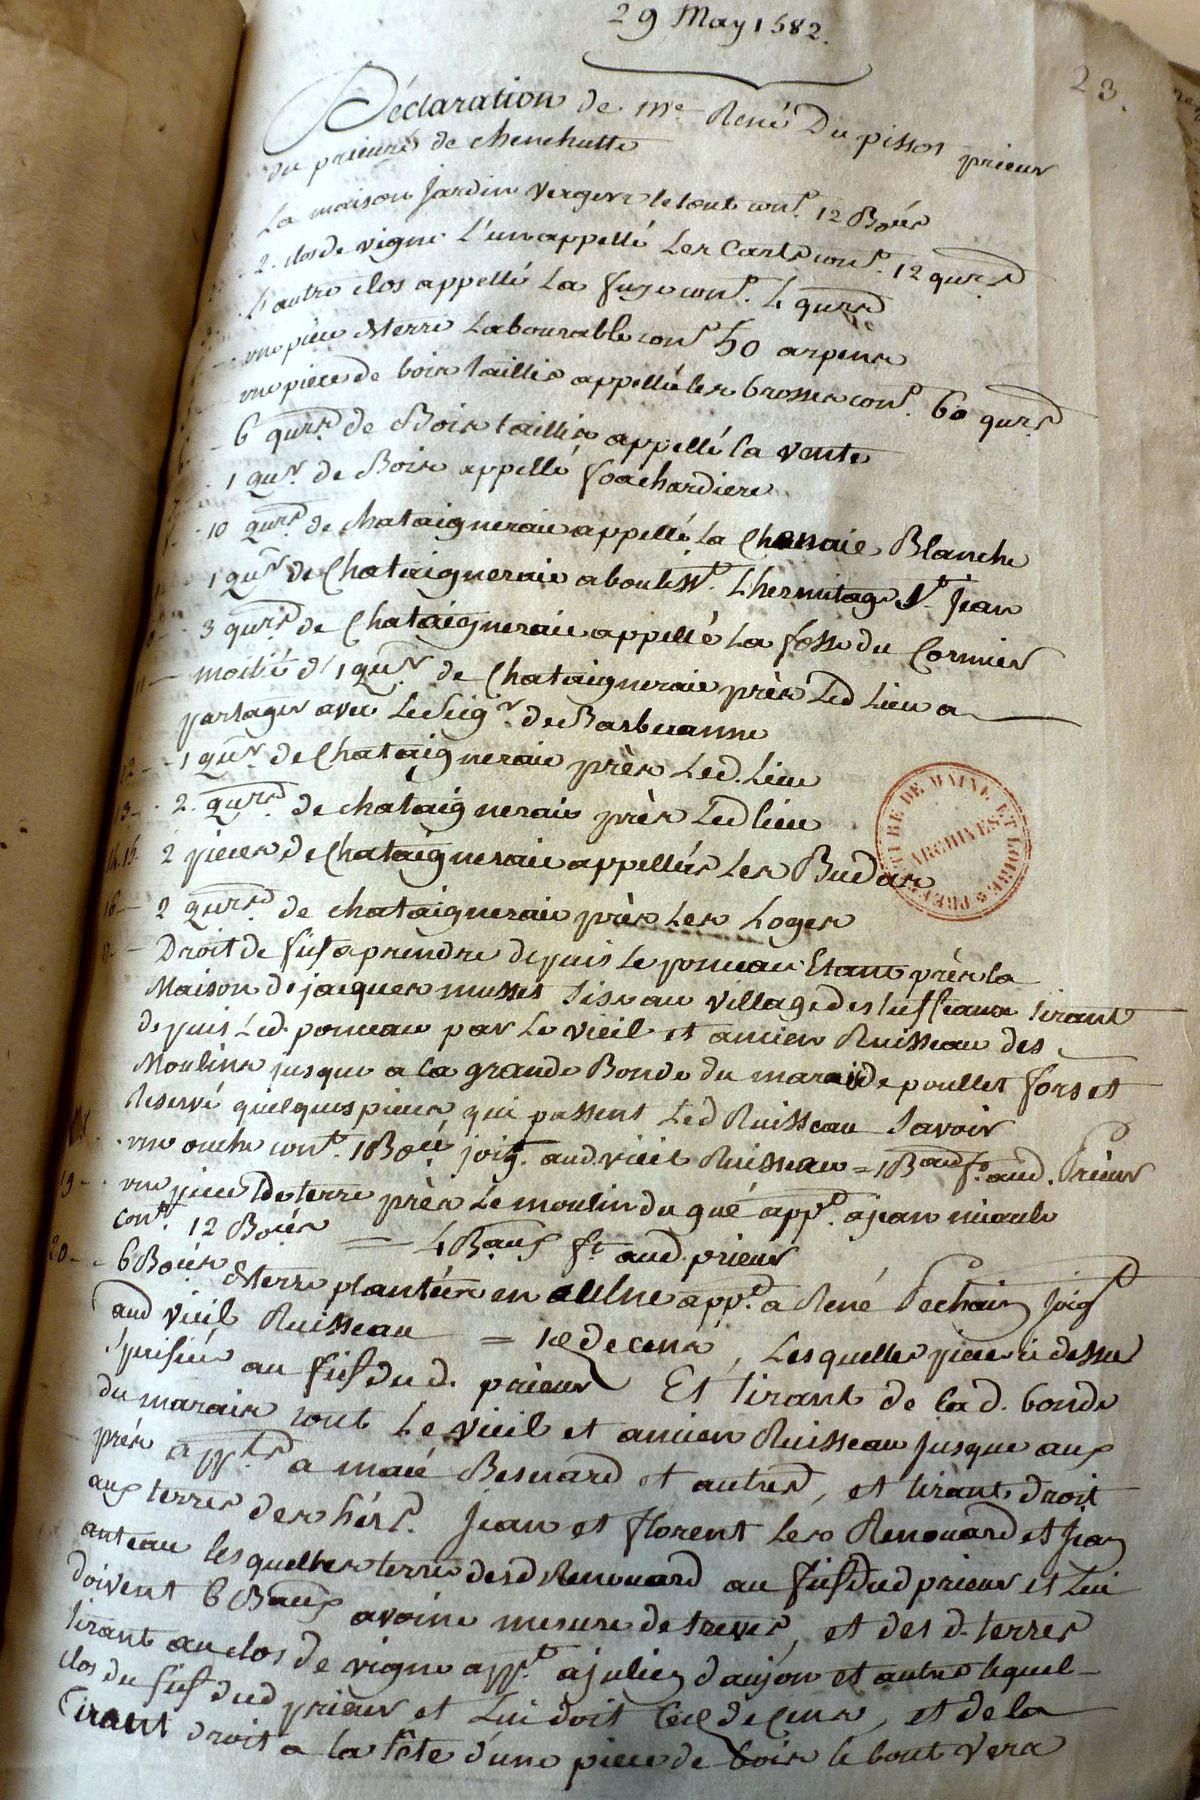 29 May 1582.
23.
Déclaration de Me René Du pissot prieur
du prieuré de chenehutte
La maison Jardin vergers le tout cont. 12 Boées
2. clos de vigne L'un appellé Les Carts cont. 12 quers
L'autre clos appellé La fuye cont. 4 quers
une pièce d terre Labourable cont 50 arpens
une piece de bois taillis appellé les brosses cont. 60 quers
6 quers de Bois taillis appellé la vente
1 quer. de Bois appellé foachardiere
10 quers de chataigneraie appellé La Chenaie Blanche
1 quer de Chataigneraie aboutisst. L'hermitage St Jean
3 quers de Chataigneraie appellé La fosse du Cormier
11 - moitié d'1 quer de Chataigneraie près Led Lieu a
partager avec Le Seigr de Barbeanne
12 - 1 quer de Chataigneraie près Led. Lieu
13 - 2 quers de chataigneraie près Led lieu
14. 15. 2 pieces de Chataigneraie appellées Les Budas
16 - 2 quers de chataigneraie près Les Loges
17 - Droit de fief a prendre depuis Le ponceau Etant près la
Maison de jacques musset Sise au village des tuffeaux tirant
depuis Led. ponceau par Le vieil et ancien Ruisseau des
Moulins jusque a la grande Bonde du marais de poullet fors et
Reservé quelques pieces qui passent Led Ruisseau Savoir
18 une ouche cont. 1 Boée joigt. aud. vieil Ruisseau = 1 Beau ft aud. Prieur
19 - une piece de terre près Le moulin du gué appt. a jean miault
cont. 12 Boées = 4 Beaux ft aud. prieur
20 - 6 Boées d terre plantées en aulne appt a René Pechain joigt
aud vieil Ruisseau = 18d de cens, Lesquelles pièces ci dessus
Spécifiées au fief du d. prieur Et tirant de la d. bonde
du marais tout Le vieil et ancien Ruisseau jusque aux
prés appts a macé Besnard et autres, et tirant droit
aux terres des hérs. Jean et florent Les Renouard et Jean
anteau lesquelles terres desd Renouard au fief dud prieur et Lui
doivent 6 Beaux avoine mesure de treves, et des d. terres
tirant au clos de vigne appt a julien daujon et autres lequel
clos du fief dud prieur et Lui doit de cens, et de la
Tirant droit a la tête d'une piece de bois le bout vers
PREFECTURE DE MAINE ET LOIRE
ARCHIVES